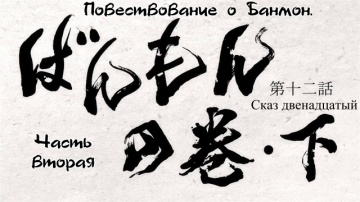 Повествование о Банмон.
ばんもん
第十二話
Сказ двенадцатый
の巻・下
Часть
вторая